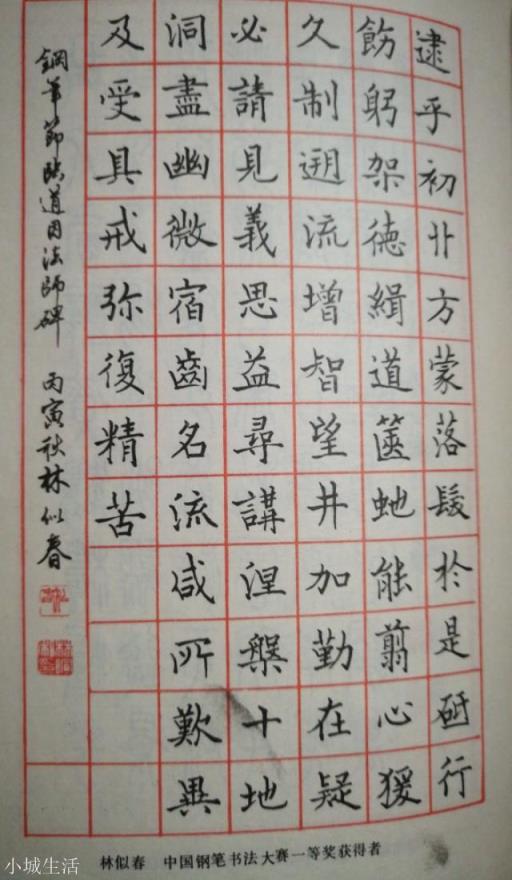 逮乎初丱方蒙落髮於是砥行
飭躬架德緝道篋虵能翦心猨
久制遡流增智望井加勤在疑
必請見義思益尋講涅槃十地
洞盡幽微宿齒名流咸所歎異
及受具戒弥復精苦
鋼筆節臨道因法師碑 丙寅秋林似春
林似春 中国钢笔书法大赛一等奖获得者
小城生活